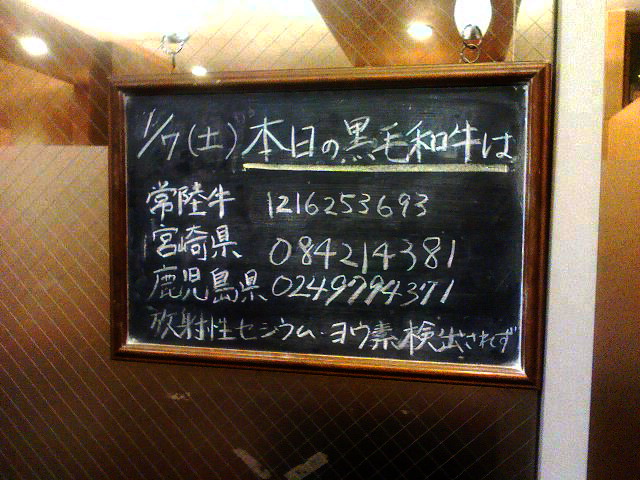 1/7(土)本日の黒毛和牛は
常陸牛 1216253693
宮崎県 084214381
鹿児島県 0249794371
放射性セシウム・ヨウ素検出されず